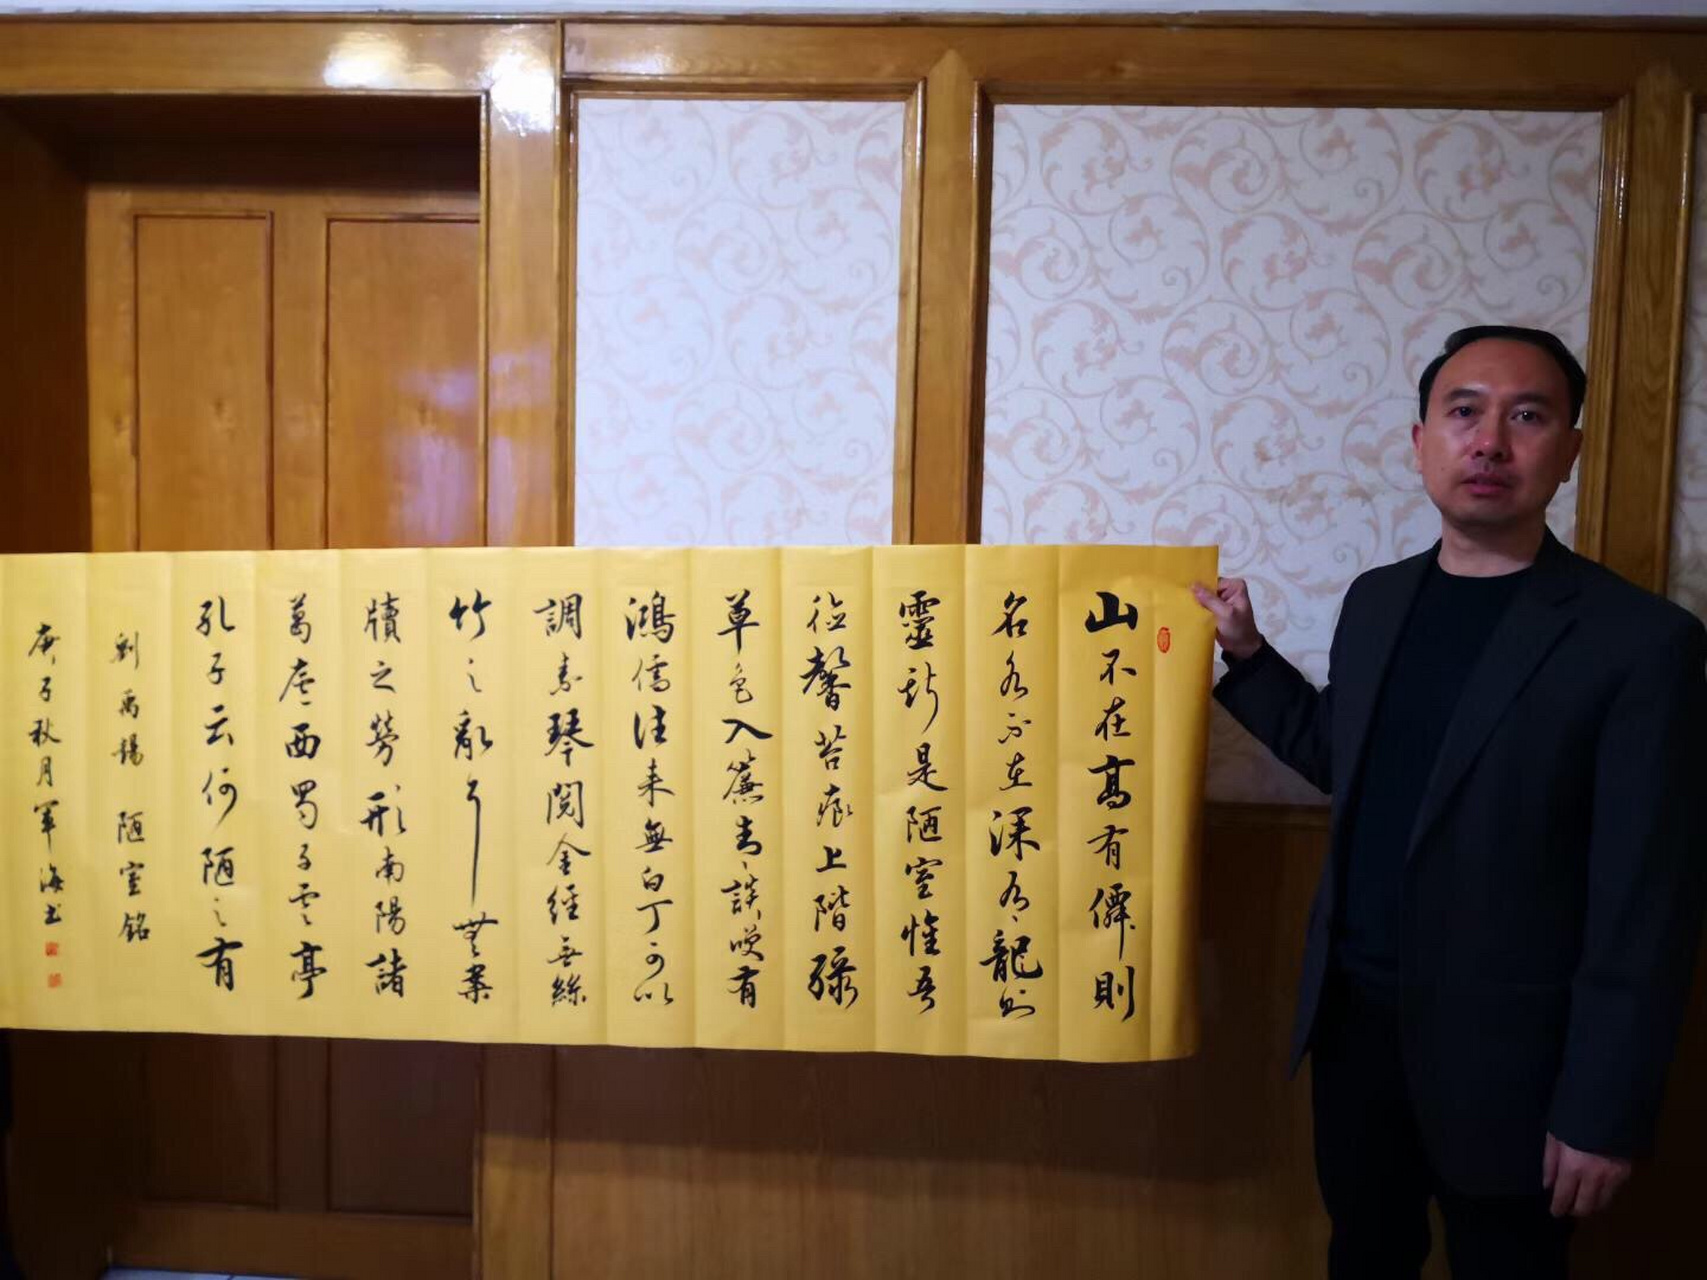 山不在高有僊則
名水不在深有龍則
靈斯是陋室惟吾
德馨苔痕上階緑
草色入簾青談笑有
鴻儒往來無白丁可以
調素琴閱金經無絲
竹之亂耳無案
牘之勞形南陽諸
葛廬西蜀子雲亭
孔子云何陋之有
劉禹錫 陋室銘
庚子秋月軍海书